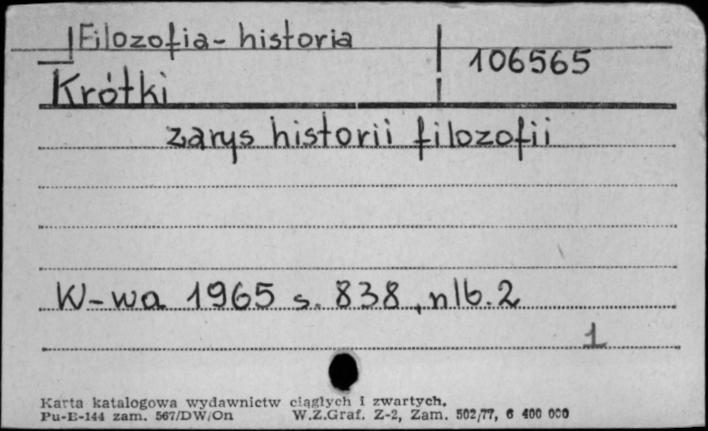 Filozofia - historia
106565
Krótki
zarys historii filozofii
W-wa 1965 s. 838, nlb. 2
1
Karta katalogowa wydawnictw ciągłych i zwartych.
Pu-E-144 zam. 567/DW/On W.Z.Graf. Z-2, Zam. 502/77, 6 400 000